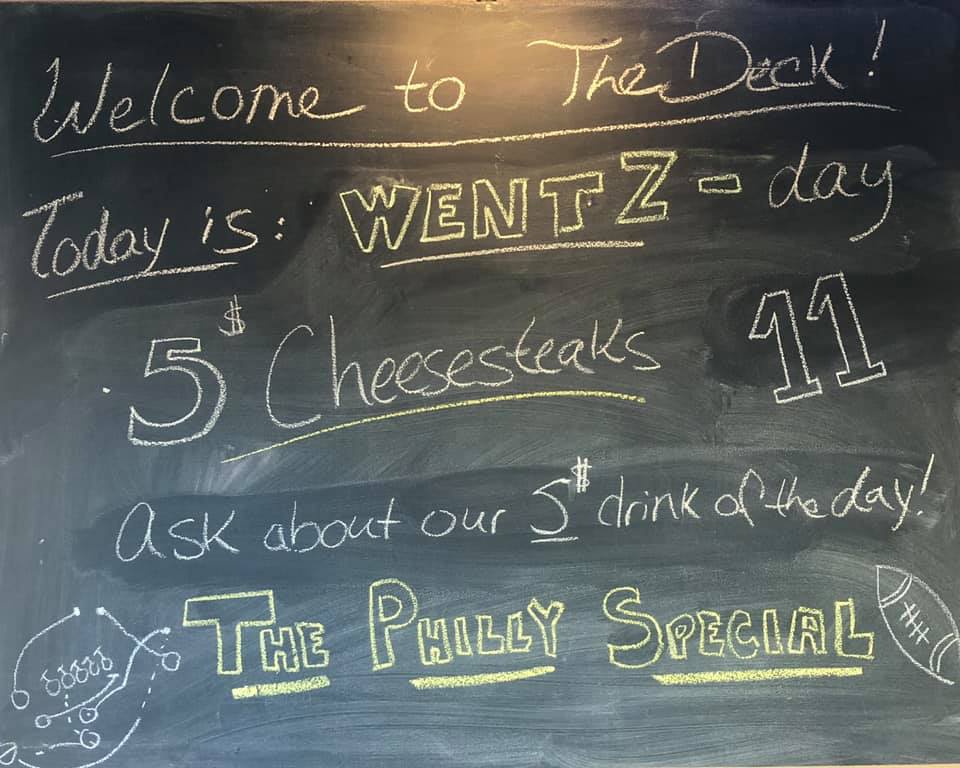 Welcome to The Deck!
Today is: WENTZ-day
5$ Cheesesteaks 11
Ask about our 5$ drink of the day!
THE PHILLY SPECIAL